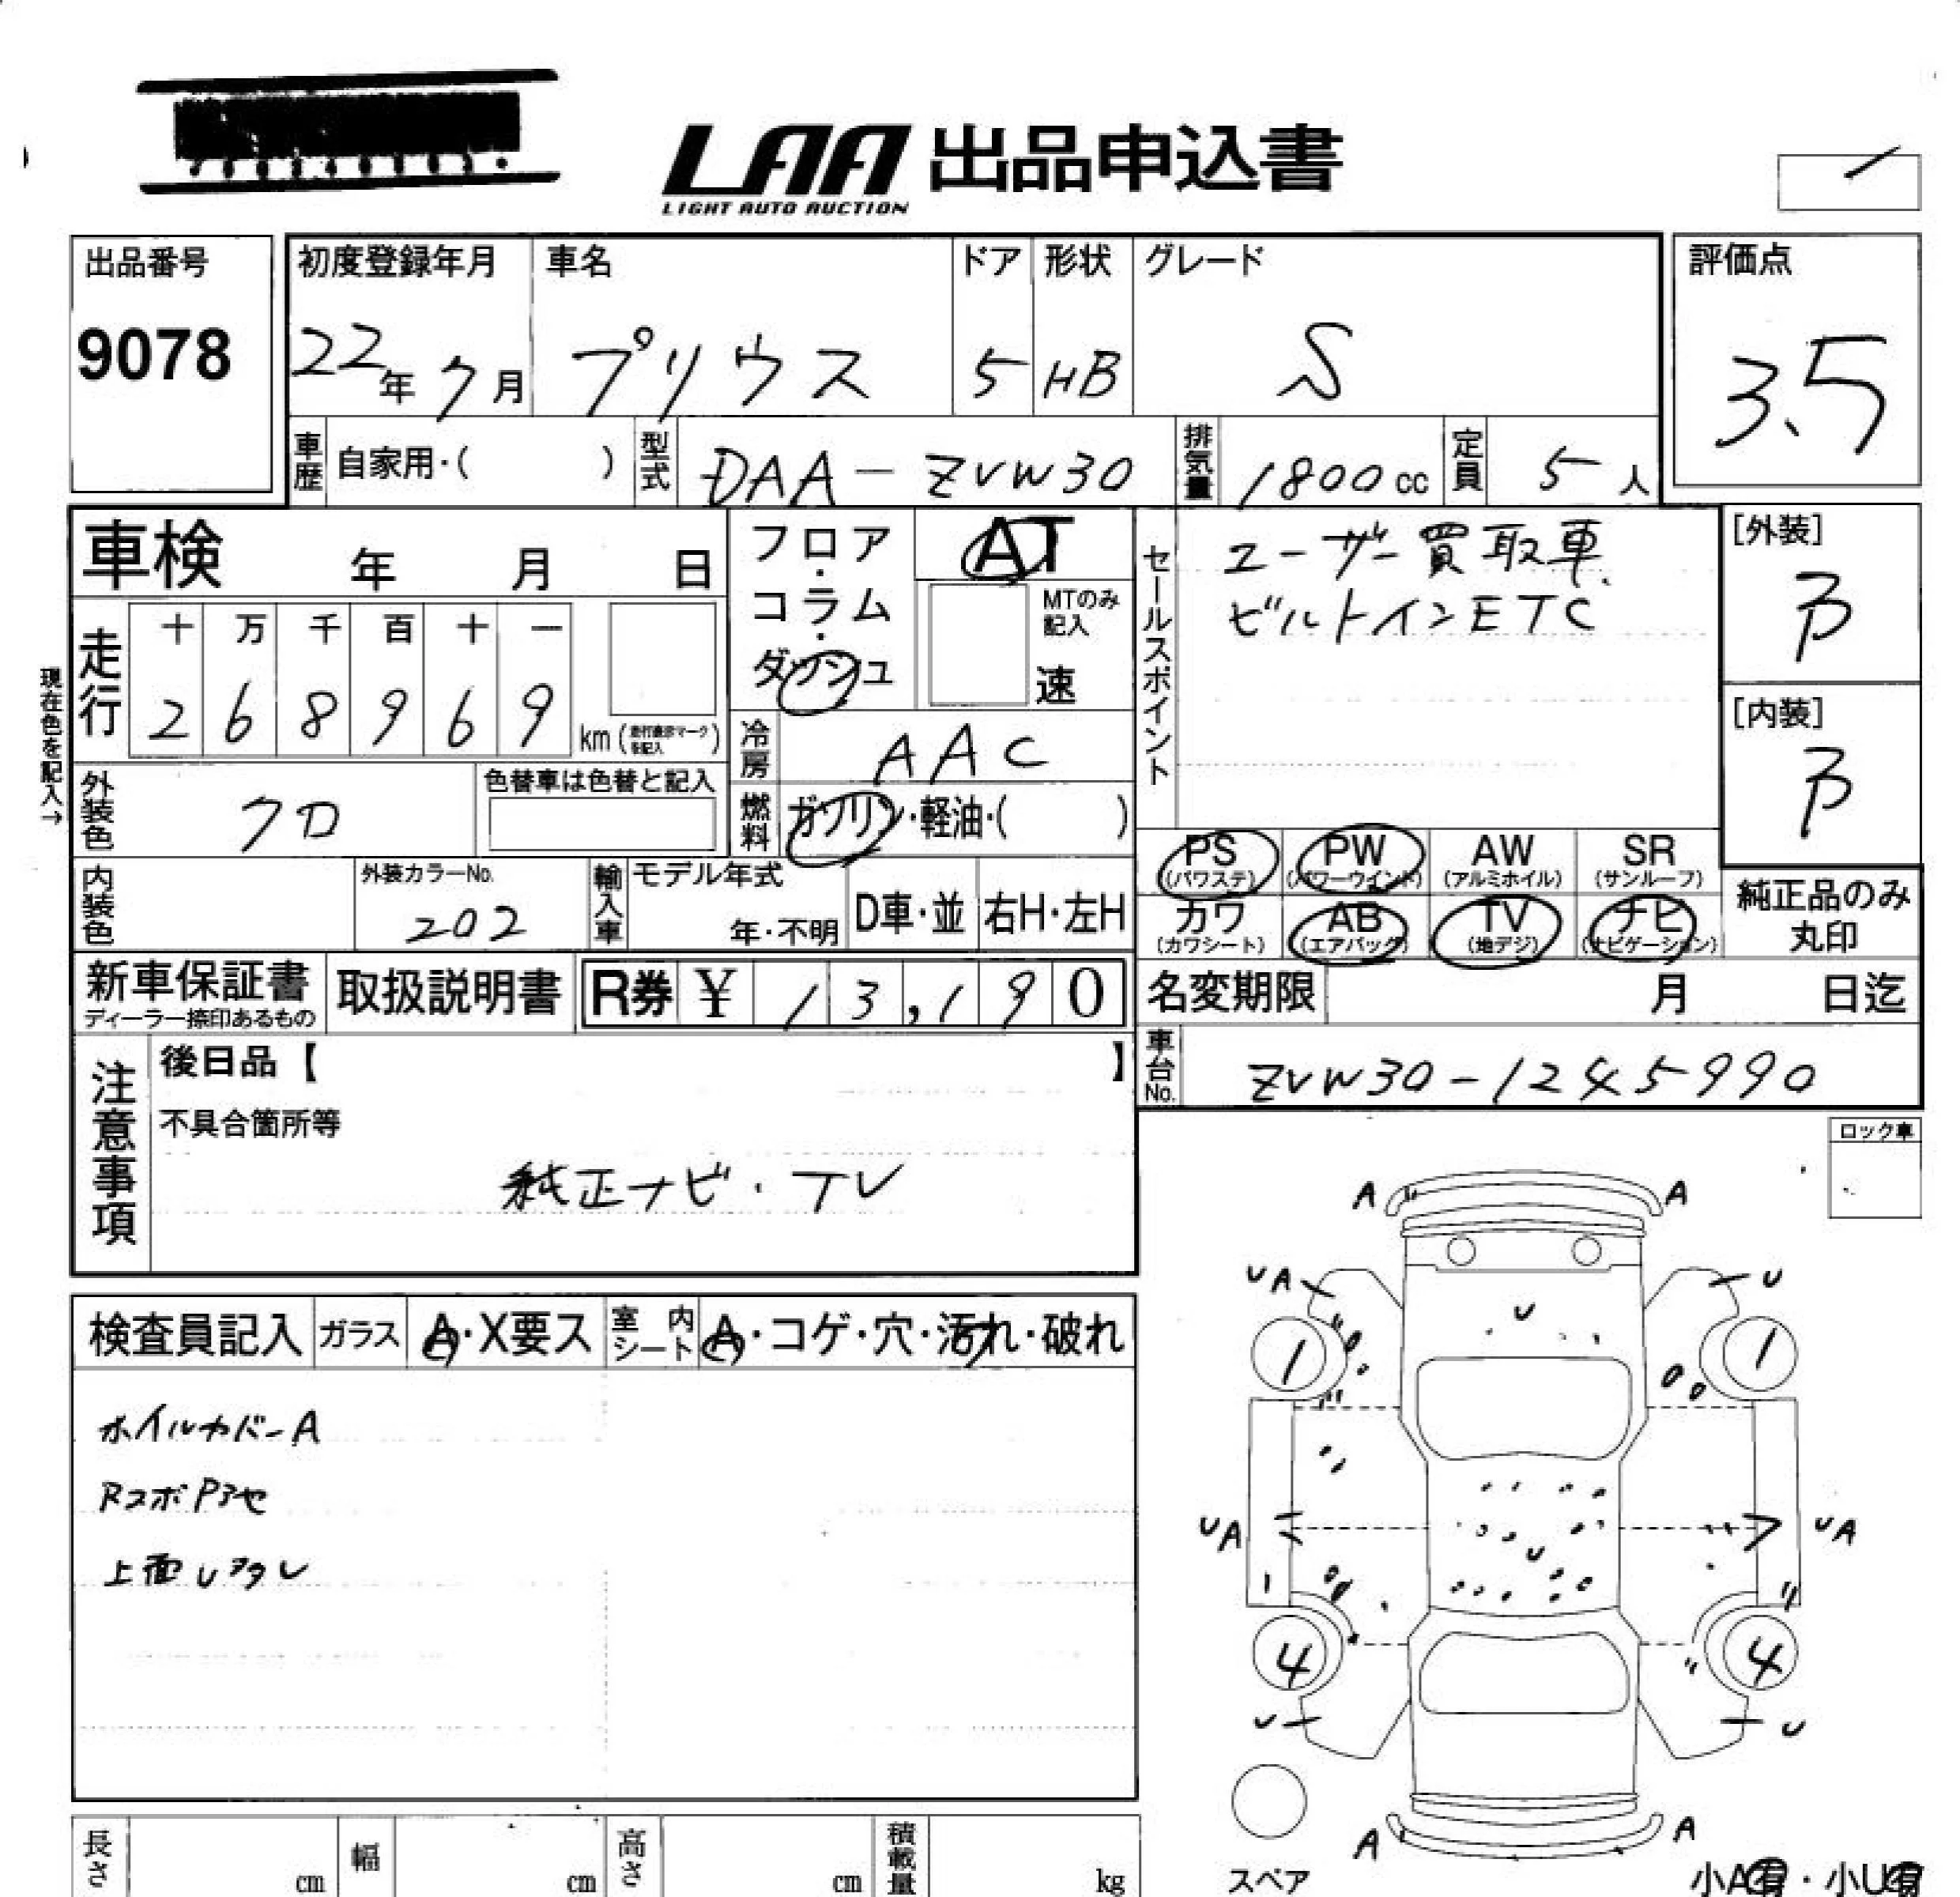 LAA 出品申込書
LIGHT AUTO AUCTION
出品番号
9078
初度登録年月
22年 7月
車名
プリウス
ドア
5
形状
HB
グレード
S
評価点
3.5
車歴 自家用・( )
型式 DAA-ZVW30
排気量 1800 cc
定員 5 人
車検 年 月 日
フロア・コラム・ダッシュ
AT
MTのみ記入
速
セールスポイント
ユーザー買取車
ビルトインETC
[外装]
[内装]
現在色を記入→
走行
十 万 千 百 十 一
2 6 8 9 6 9 km (走行表示マークを記入)
冷房 AAC
外装色 クロ
色替車は色替と記入
燃料 ガソリン・軽油・( )
PS (パワステ)
PW (パワーウインド)
AW (アルミホイル)
SR (サンルーフ)
内装色
外装カラーNo.
202
輸入車
モデル年式
年・不明
D車・並
右H・左H
カワ (カワシート)
AB (エアバッグ)
TV (地デジ)
ナビ (ナビゲーション)
純正品のみ丸印
新車保証書
ディーラー捺印あるもの
取扱説明書
R券 ¥ 13,190
名変期限 月 日迄
車台No. ZVW30-1245990
注意事項
後日品【 】
不具合箇所等
純正ナビ・TV
ロック車
検査員記入
ガラス A・X要ス
室内シート A・コゲ・穴・汚れ・破れ
ホイルカバーA
上面
A A
UA U
U
1 1
UA UA
U
4 4
U U
A A
スペア
小A有・小U有
長さ cm
幅 cm
高さ cm
積載量 kg